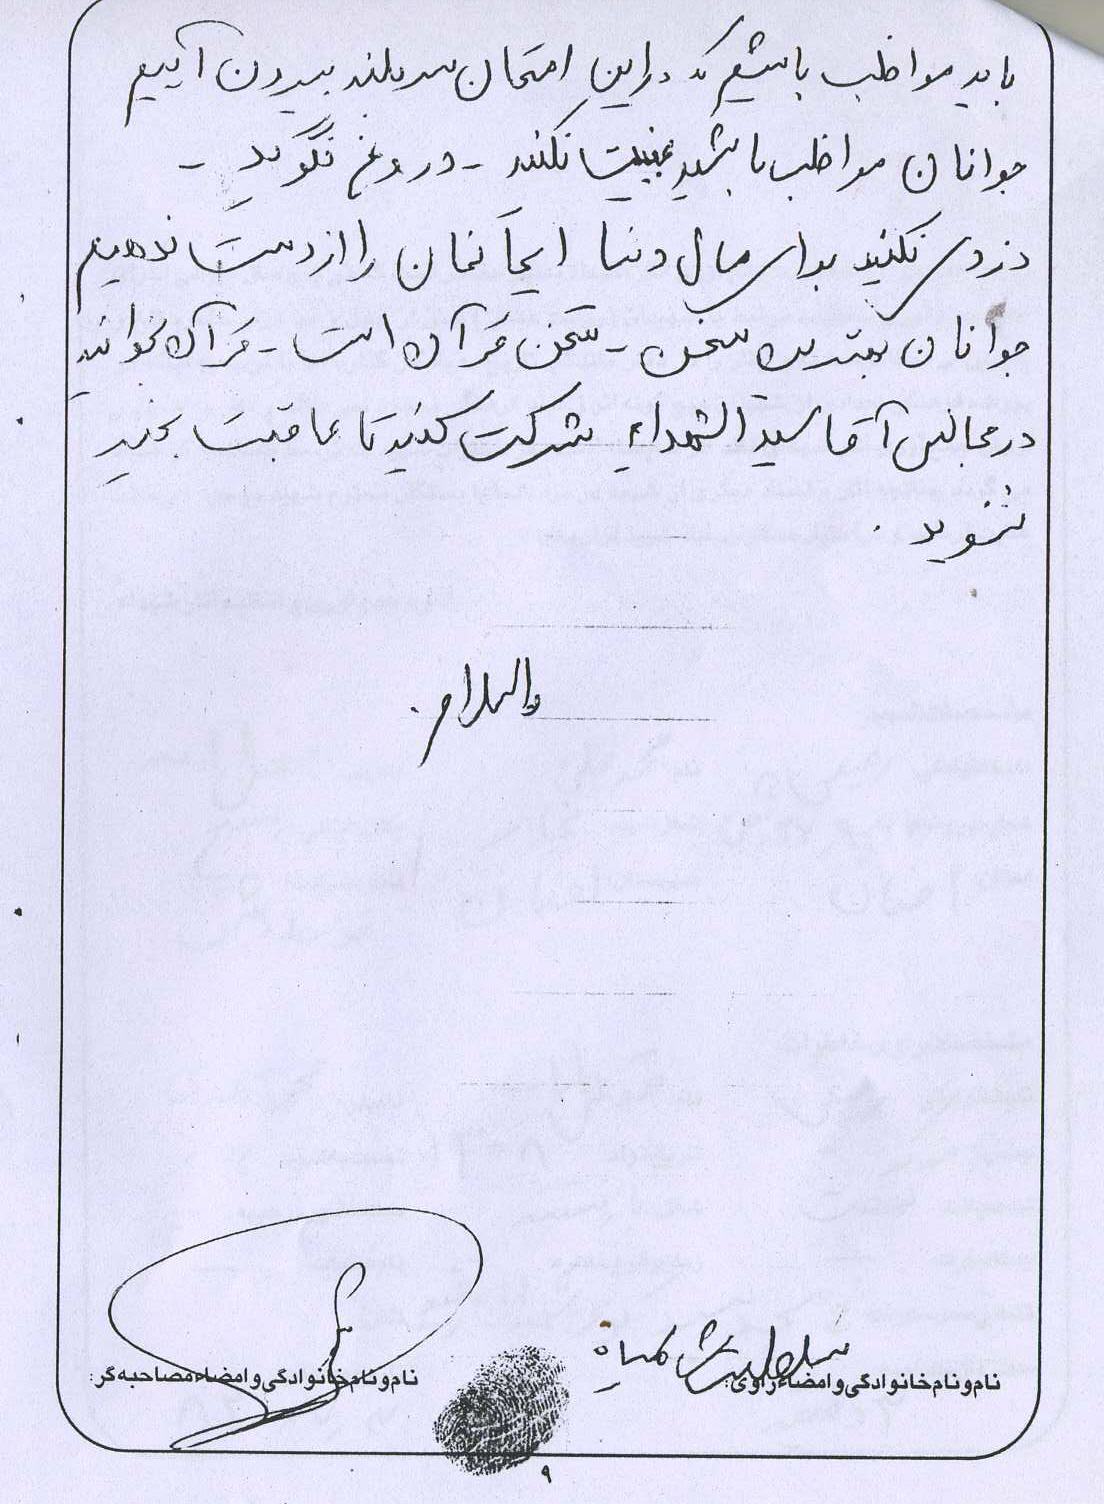 باید مواظب باشیم که در این امتحان سربلند بیرون آییم
جوانان مواظب باشید غیبت نکنند - دروغ نگوید -
دزدی نکنید برای مال دنیا ایمانمان را از دست ندهیم
جوانان بهترین سخن - سخن قرآن است - قرآن بخوانید
در مجالس آقا سید الشهداء شرکت کنید تا عاقبت بخیر
شوید .
والسلام .
نام و نام خانوادگی و امضاء راوی:
نام و نام خانوادگی و امضاء مصاحبه گر:
۹